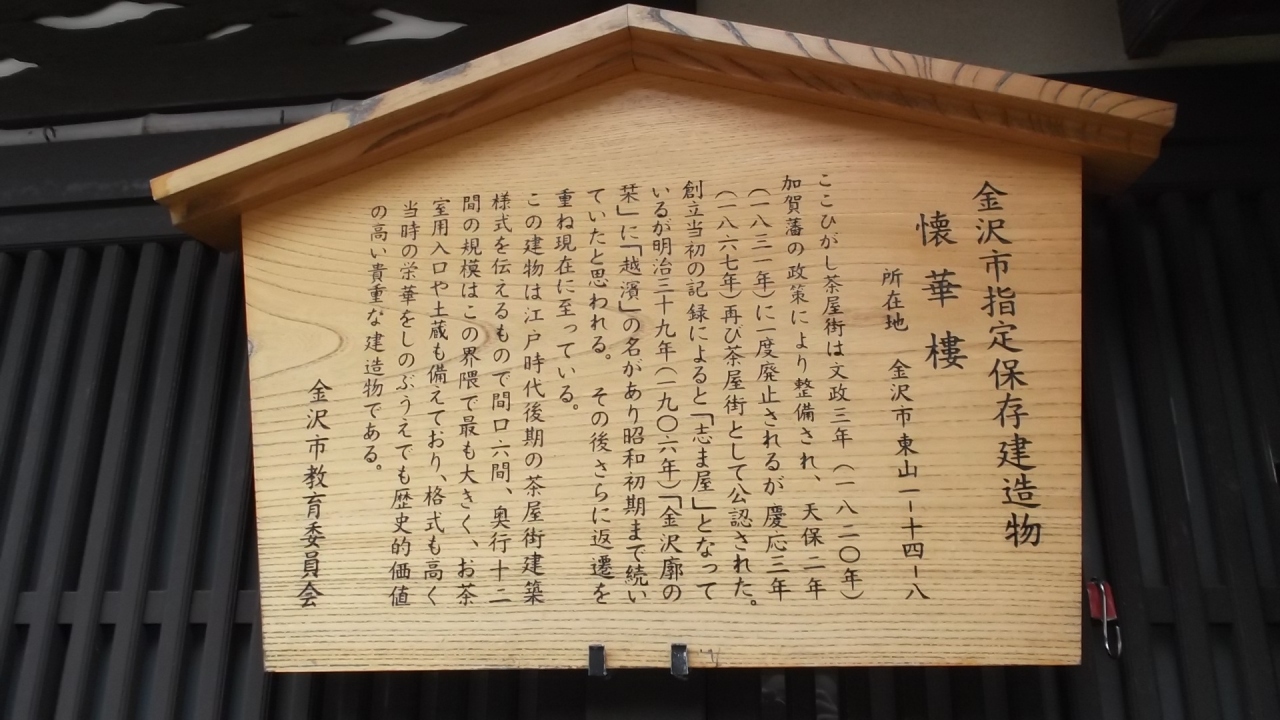 金沢市指定保存建造物
懐華樓
所在地　金沢市東山一-十四-八
ここひがし茶屋街は文政三年（一八二〇年）
加賀藩の政策により整備され、天保二年
（一八三一年）に一度廃止されるが慶応三年
（一八六七年）再び茶屋街として公認された。
創立当初の記録によると「志ま屋」となって
いるが明治三十九年（一九〇六年）「金沢廓の
栞」に「越濱」の名があり昭和初期まで続い
ていたと思われる。その後さらに返遷を
重ね現在に至っている。
この建物は江戸時代後期の茶屋街建築
様式を伝えるもので間口六間、奥行十二
間の規模はこの界隈で最も大きく、お茶
室用入口や土蔵も備えており、格式も高く
当時の栄華をしのぶうえでも歴史的価値
の高い貴重な建造物である。
金沢市教育委員会